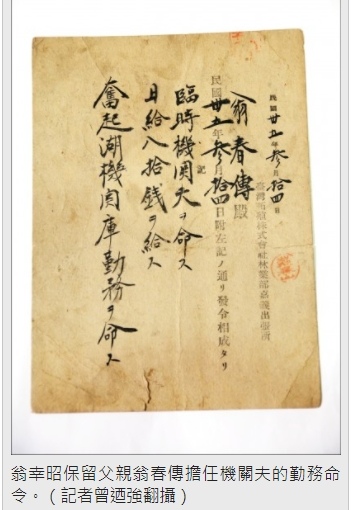 民國卅五年參月拾四日
臺灣拓殖株式會社林業部嘉義出張所
翁春傳殿
民國卅五年參月拾四日附左記ノ通リ發令相成タリ
記
臨時機関夫ヲ命ス
日給八拾錢ヲ給ス
奮起湖機関庫勤務ヲ命ス
翁幸昭保留父親翁春傳擔任機關夫的勤務命
令。（記者曾迺強翻攝）